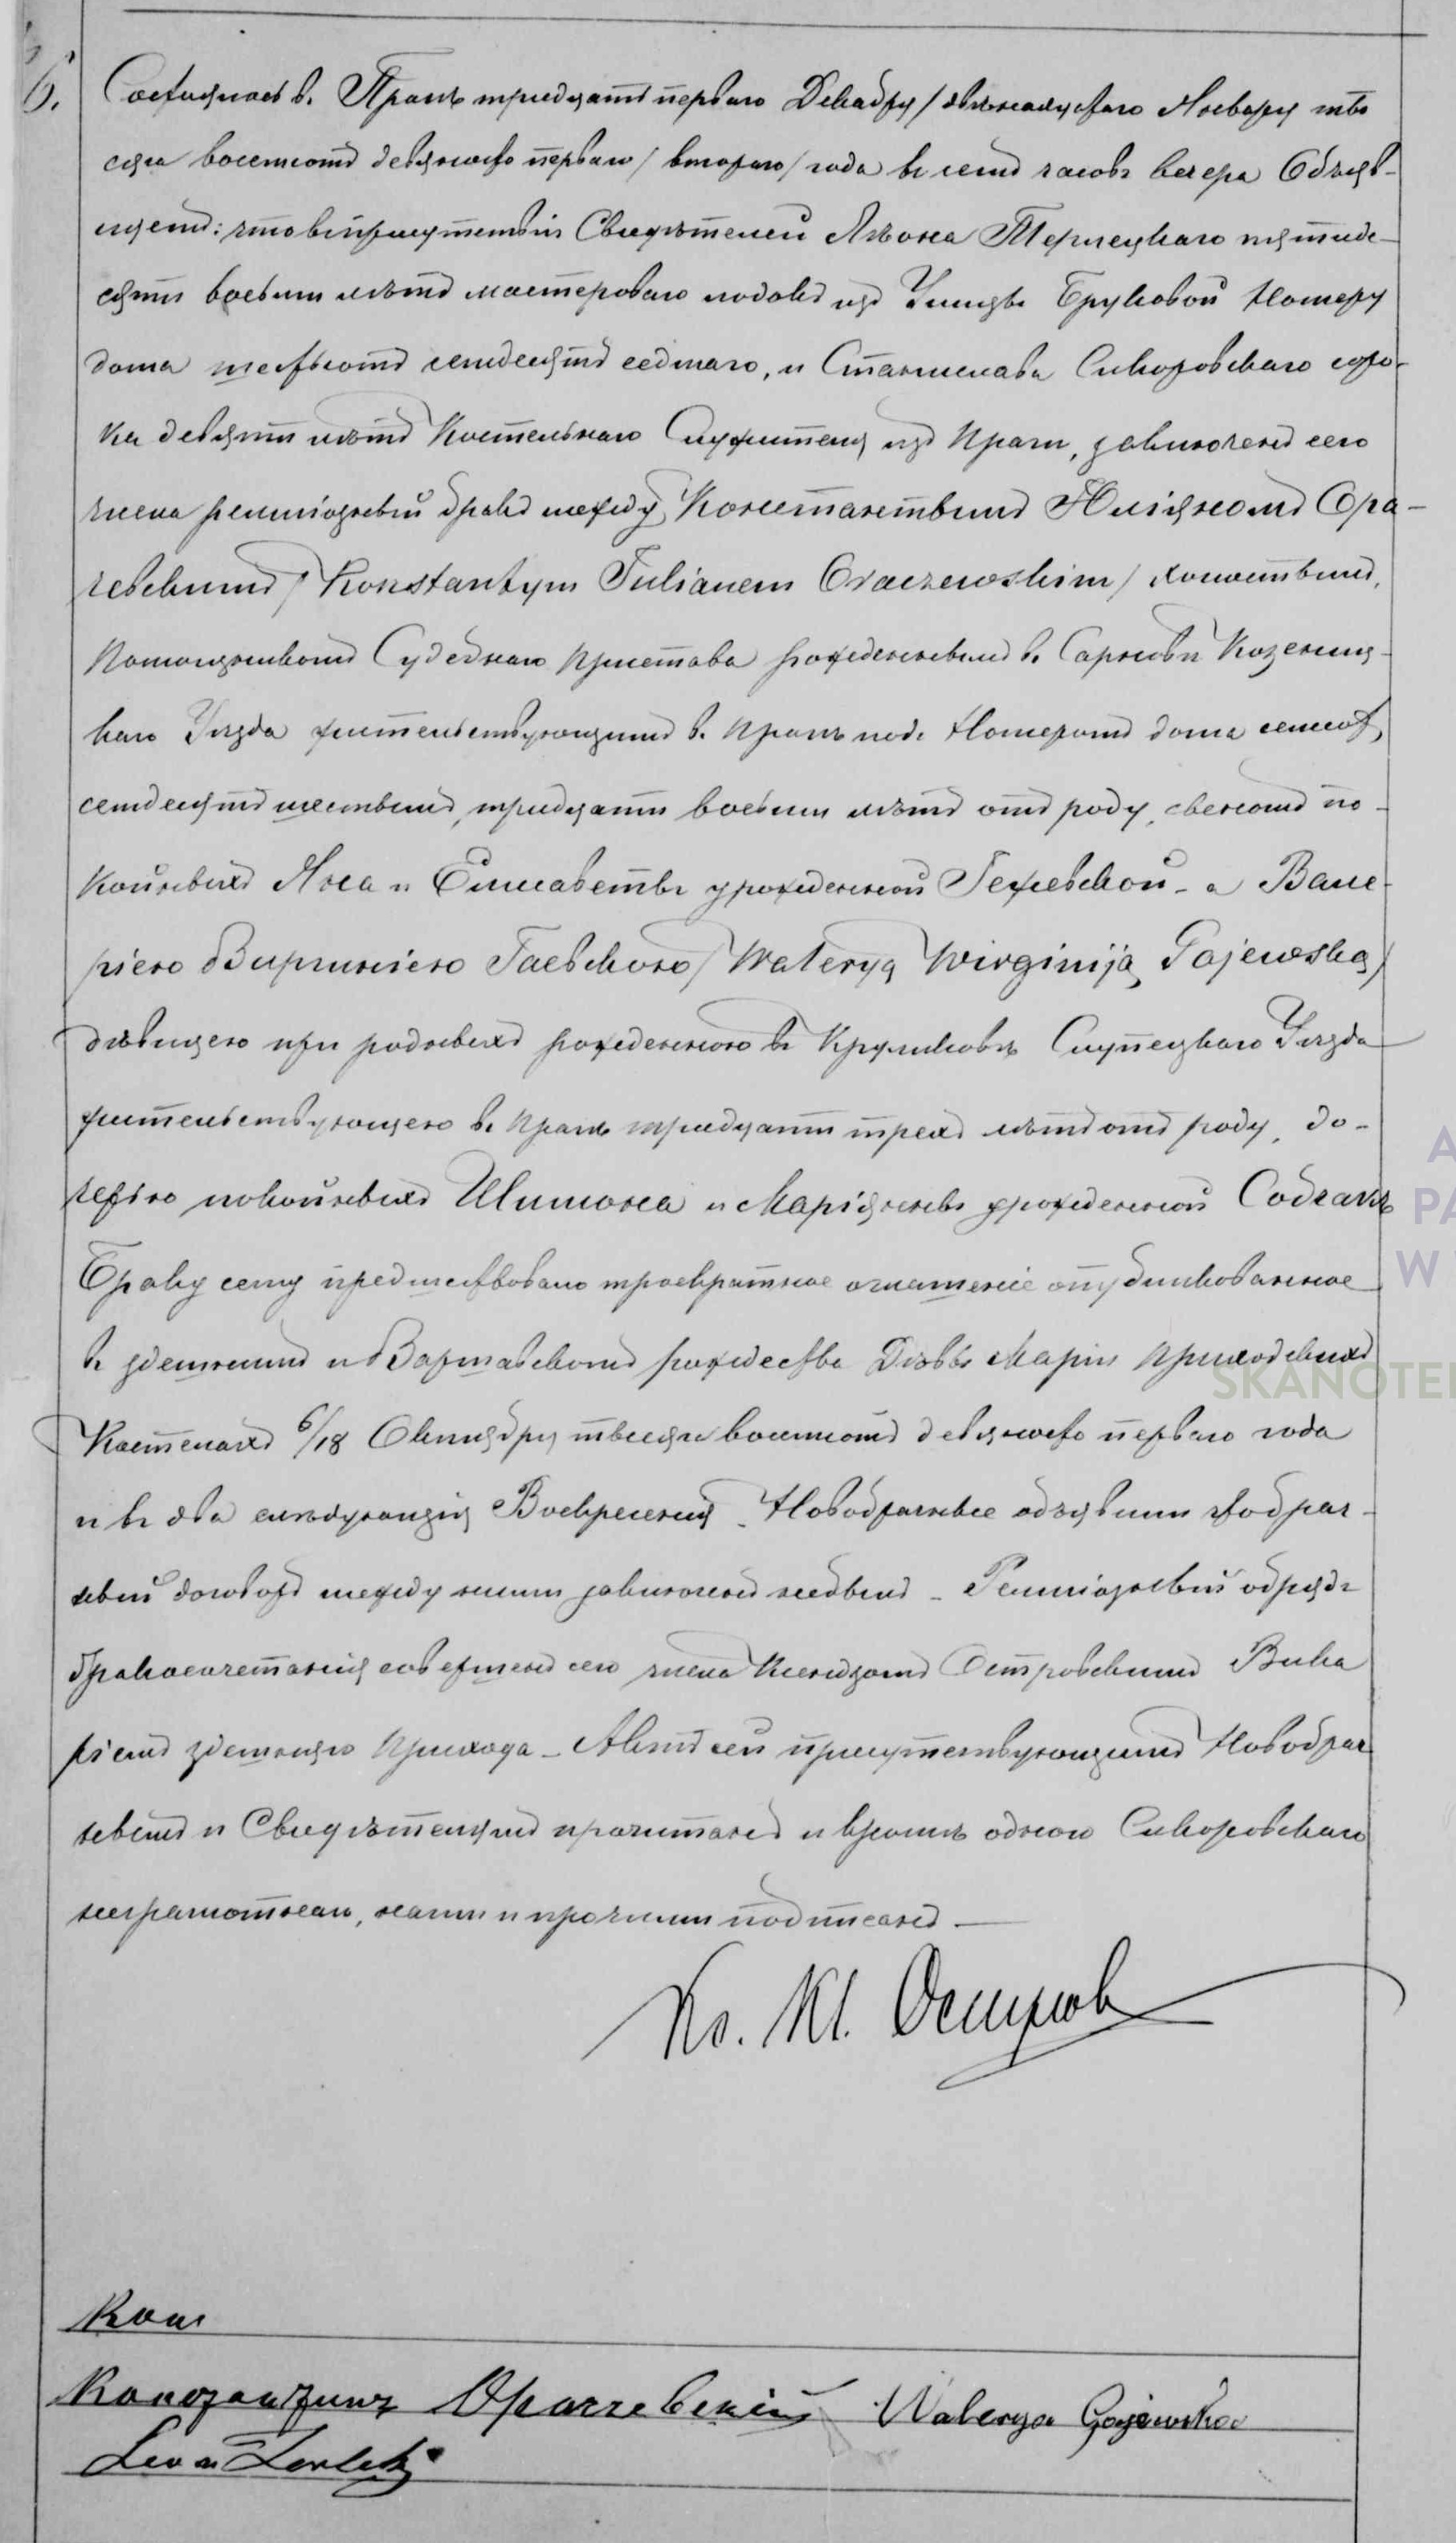 6.
Состоялось в. Праге тридцать перваго Декабря / двенадцатаго Января тыся
сяча восемсотъ девяносто перваго / втораго / года въ семь часовъ вечера Объяв-
ляемъ: что въ присутствіи Свидѣтелей Леона Терлецкаго пятиде-
сяти восьми лѣтъ мастероваго изъ Улицы Бруковой Номеръ
дома шестьсотъ семдесятъ седмаго, и Станислава Сикоровскаго соро-
ка девяти лѣтъ Костельнаго Служителя изъ Праги, заключенъ сего
числа религіозный бракъ между Константымъ Юліяномъ Ора-
чевскимъ / Konstantym Julianem Oraczewskim / холостымъ,
Помощникомъ Судебнаго Пристава рожденнымъ в. Сарновѣ Козениц-
каго Уѣзда жительствующимъ в. Праге подъ Номеромъ дома семсотъ
семдесятъ шестымъ, тридцати восьми лѣтъ отъ роду, сыномъ по-
койныхъ Яна и Елисаветы урожденной - а Вале-
ріею Виргиніею Гаевскою / Waleryą Wirginiją Gajewską /
дѣвицею при родныхъ рожденною въ Слупецкаго Уѣзда
жительствующею в. Праге тридцати трехъ лѣтъ отъ роду, до-
черью покойныхъ Шимона и Маріянны урожденной Собчакъ
Браку сему предшествовало троекратное оглашеніе опубликованное
въ здешнемъ и Варшавскомъ рождества Дѣвы Маріи Приходскихъ
Костелахъ 6/18 Октября тысяча восемсотъ девяносто перваго года
и въ два слѣдующія Воскресенія - Новобрачные объявили что брач-
ный договоръ между ними заключенъ небылъ - Религіозный обрядъ
бракосочетанія совершенъ сего числа Ксендзомъ Островскимъ Вика
ріемъ здешняго Прихода - Актъ сей присутствующимъ Новобрач
нымъ и Свидѣтелямъ прочитанъ и кромѣ одного Сикоровскаго
неграмотнаго, нами и прочими подписанъ —
Кс. Островс
Конс
Константинъ Орачевскій Walerya Gajewska
Leon Terlecki
A
PA
W
SKANOTE